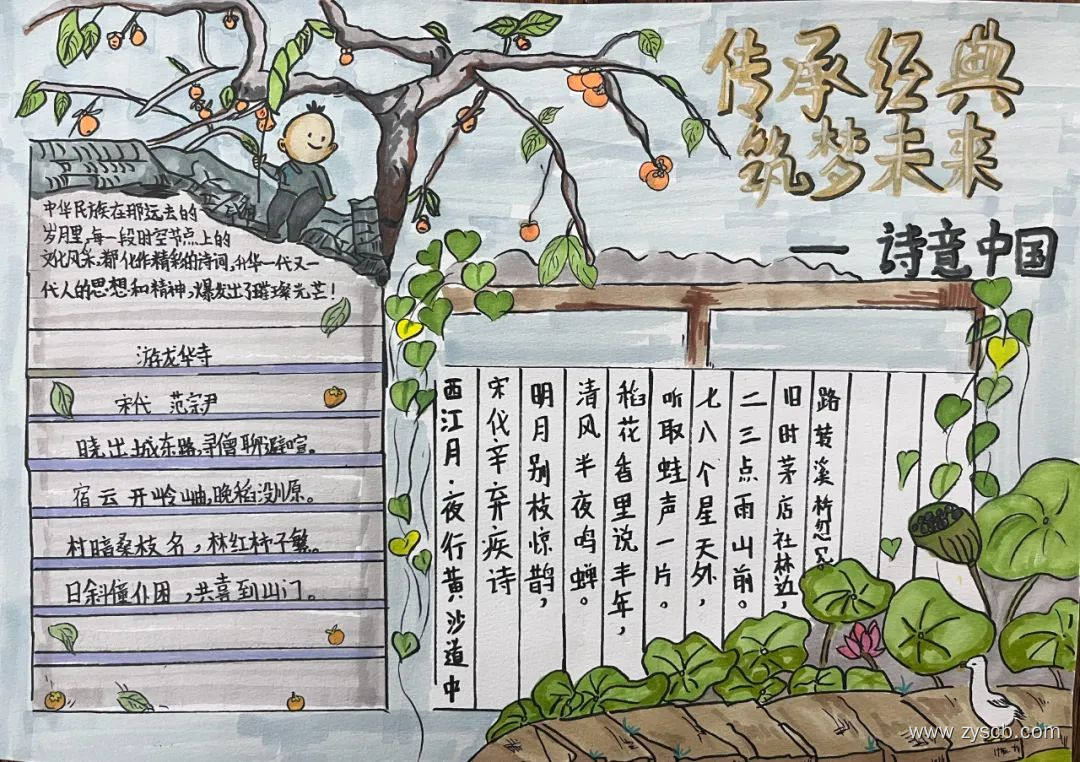 传承经典
筑梦未来
— 诗意中国
中华民族在那远去的
岁月里,每一段时空节点上的
文化风采,都化作精彩的诗词,升华一代又一
代人的思想和精神,爆发出了璀璨光芒!
游龙华寺
宋代 范宗尹
晓出城东路,寻僧聊避喧。
宿云开岭岫,晚稻没川原。
村暗桑枝名,林红柿子繁。
日斜僮仆困,共喜到山门。
西江月·夜行黄沙道中
宋代辛弃疾诗
明月别枝惊鹊,
清风半夜鸣蝉。
稻花香里说丰年,
听取蛙声一片。
七八个星天外,
二三点雨山前。
旧时茅店社林边,
路转溪桥忽
www.zyscb.com